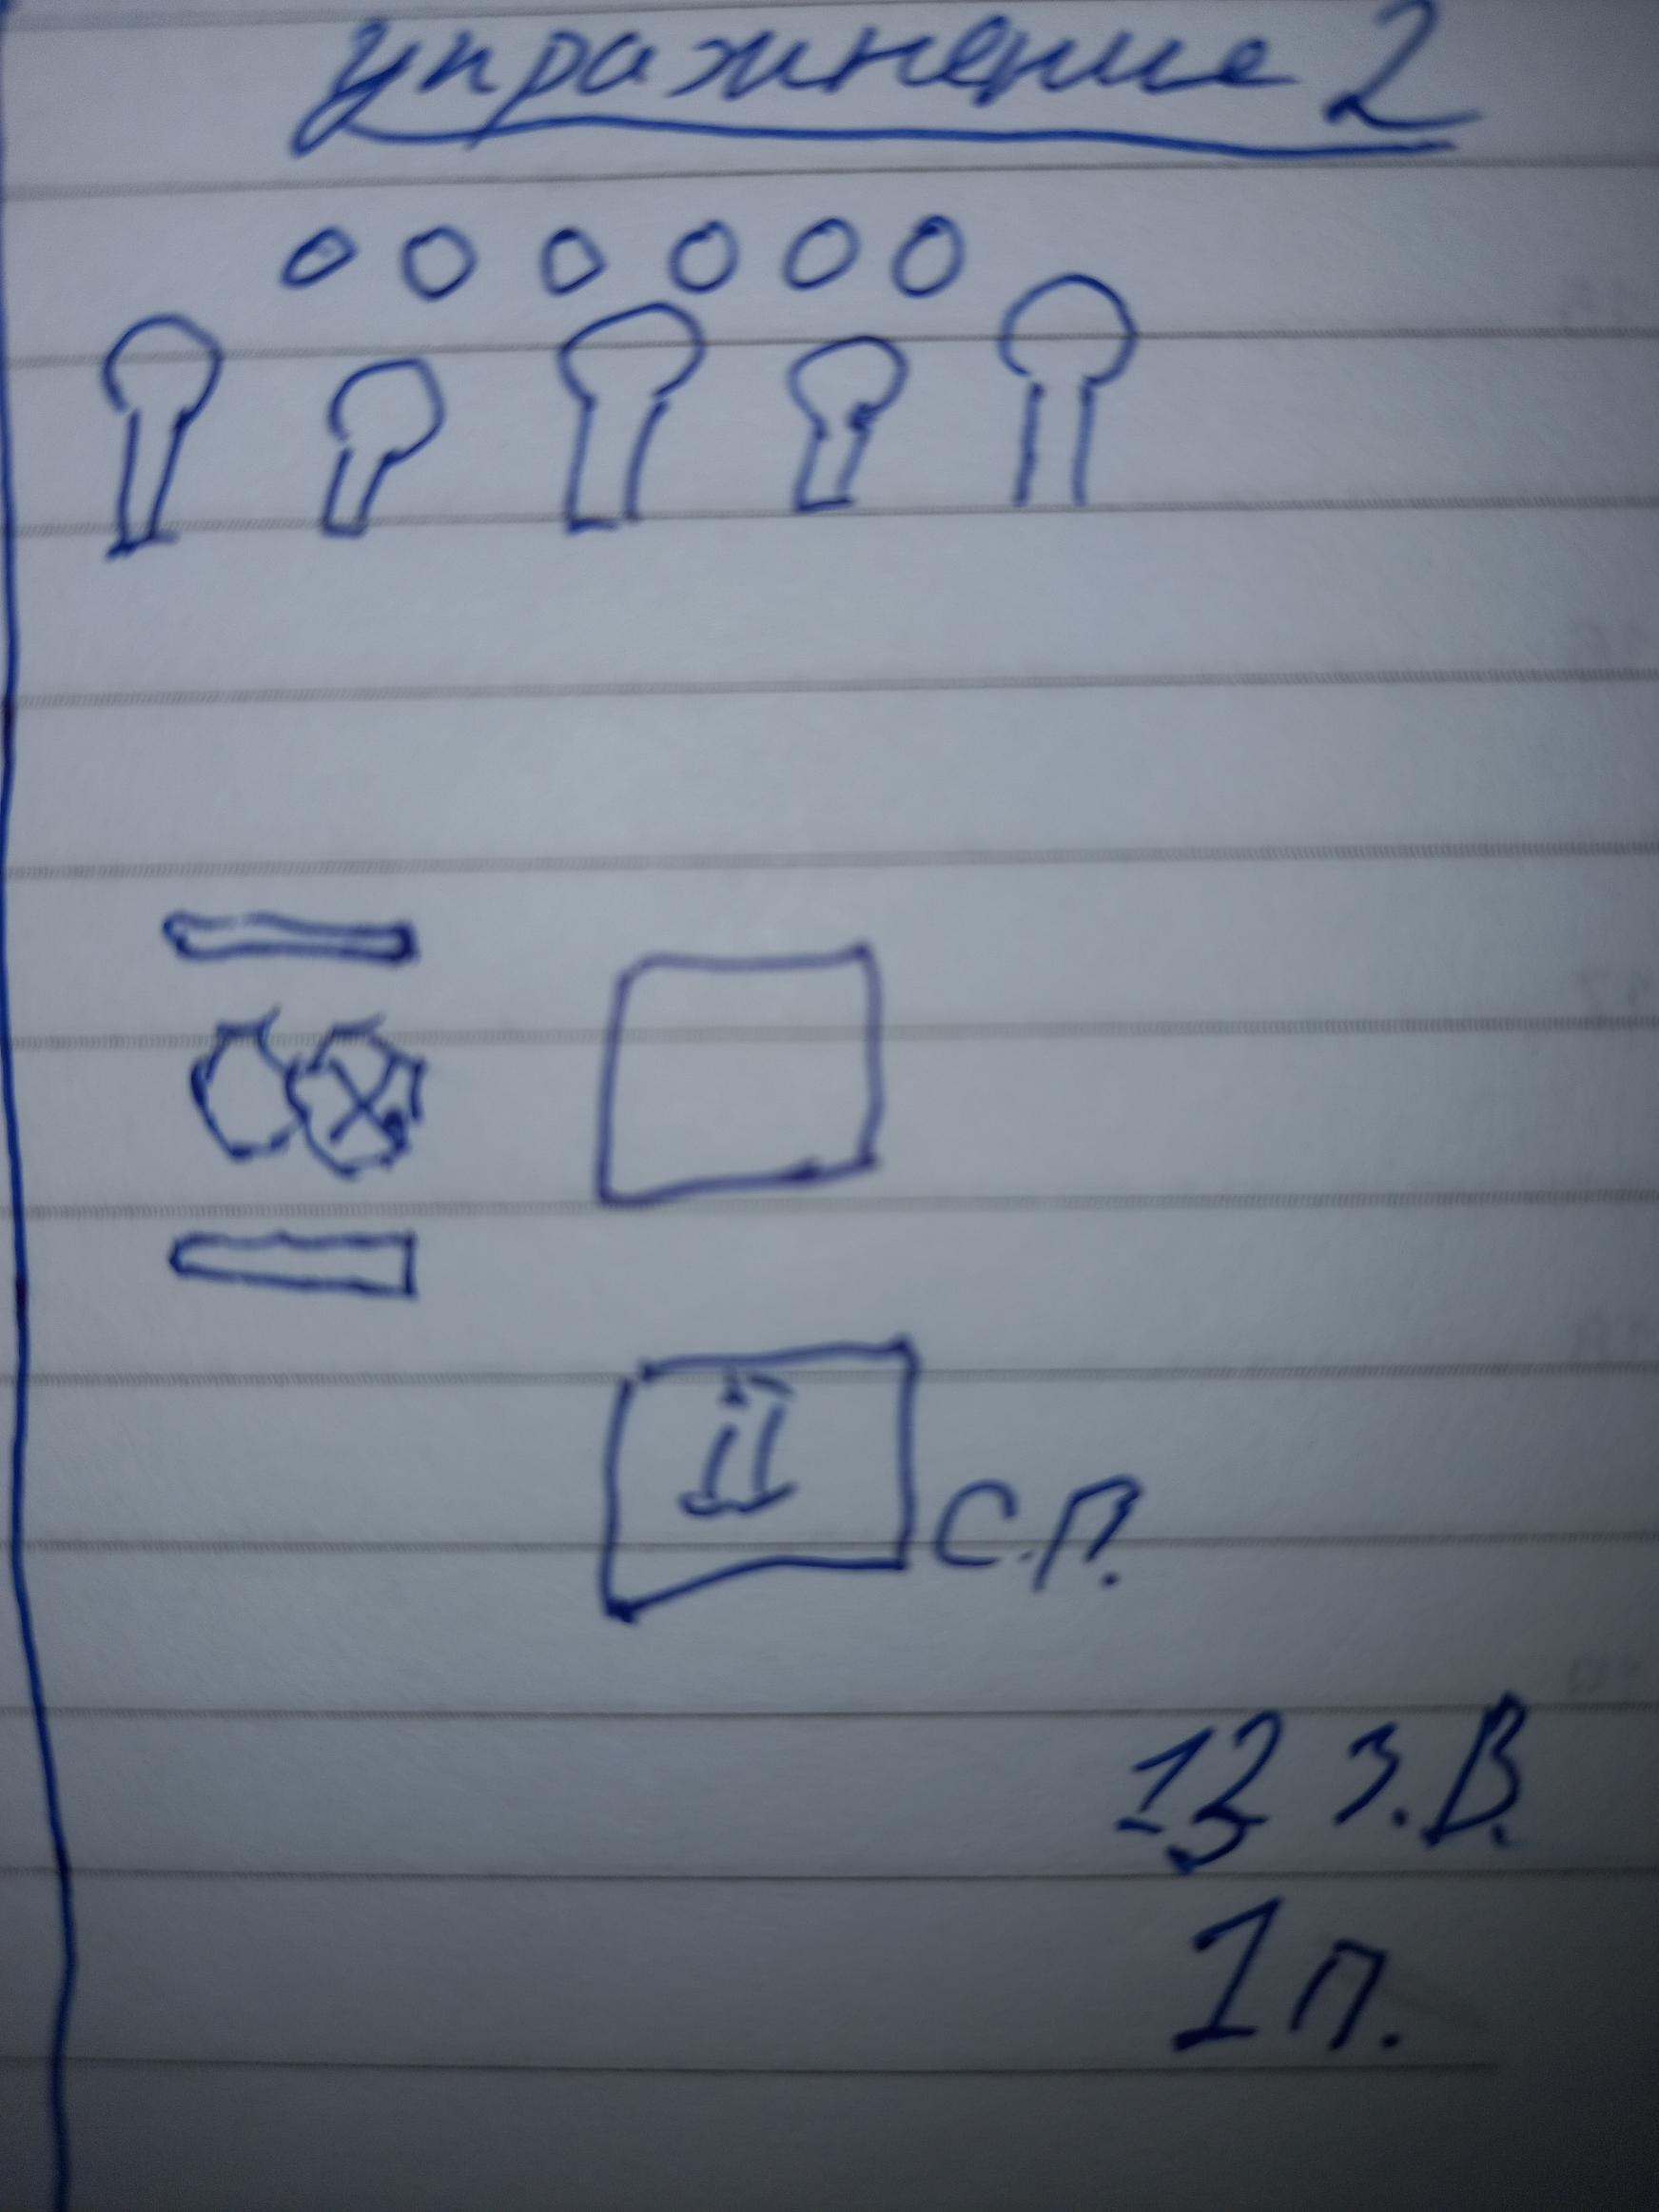 упражнение 2
С.П.
12 з.В.
1 п.